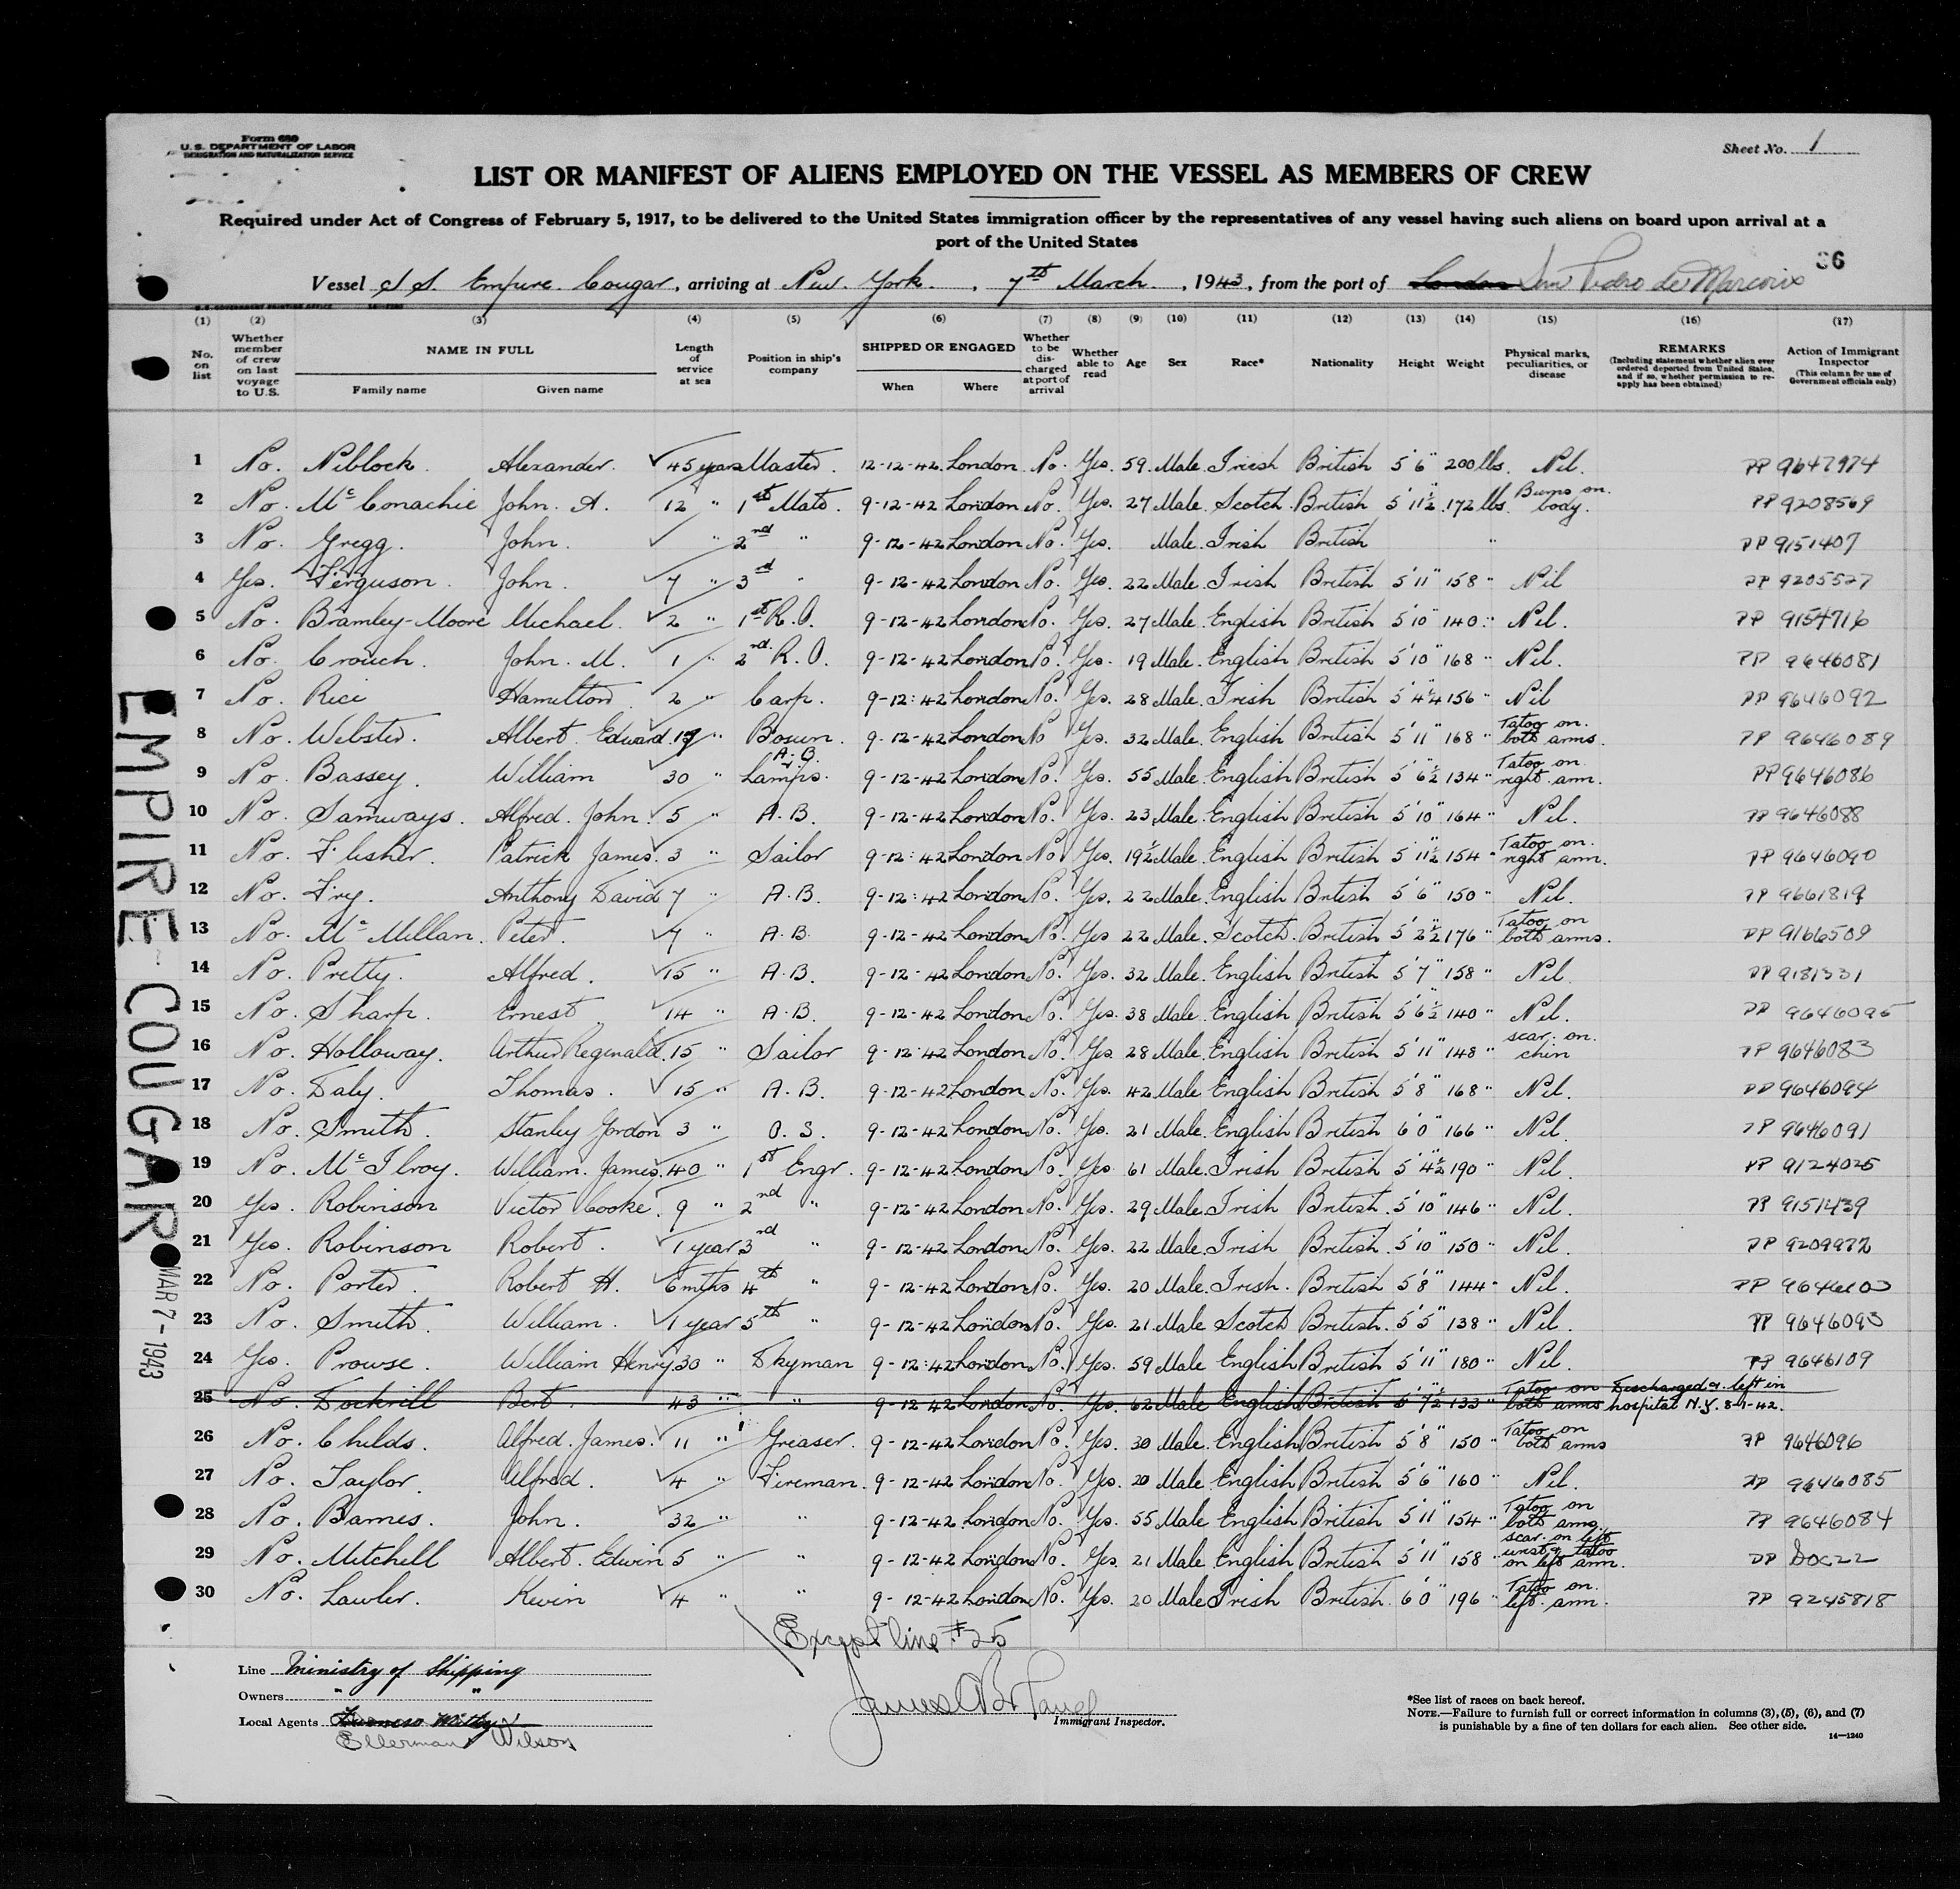 Form 680
U.S. DEPARTMENT OF LABOR
IMMIGRATION AND NATURALIZATION SERVICE
Sheet No. 1
LIST OR MANIFEST OF ALIENS EMPLOYED ON THE VESSEL AS MEMBERS OF CREW
Required under Act of Congress of February 5, 1917, to be delivered to the United States immigration officer by the representatives of any vessel having such aliens on board upon arrival at a
port of the United States
36
Vessel S.S. Empire Cougar, arriving at New York, 7th March, 1943, from the port of London San Pedro de
(1) (2) (3) (4) (5) (6) (7) (8) (9) (10) (11) (12) (13) (14) (15) (16) (17)
No. on list
Whether member of crew on last voyage to U.S.
NAME IN FULL
Family name
Given name
Length of service at sea
Position in ship's company
SHIPPED OR ENGAGED
When
Where
Whether to be discharged at port of arrival
Whether able to read
Age
Sex
Race*
Nationality
Height
Weight
Physical marks, peculiarities, or disease
REMARKS
(Including statement whether alien ever ordered deported from United States, and if so, whether permission to reapply has been obtained)
Action of Immigrant Inspector
(This column for use of Government officials only)
1 No. Niblock. Alexander. 45 years Master. 12-12-42. London. No. Yes. 59. Male. Irish British 5'6" 200 lbs. Nil. PP 9647974
2 No. McConachie John. A. 12 " 1st Mate. 9-12-42 London No. Yes. 27 Male. Scotch. British 5'11½" 172 lbs. Burns on body. PP 9208569
3 No. Gregg. John. " 2nd " 9-12-42 London No. Yes. Male. Irish British " PP 9151407
4 Yes. Ferguson. John. 7 " 3rd " 9-12-42 London No. Yes. 22 Male. Irish British 5'11" 158 " Nil PP 9205527
5 No. Bramley-Moore Michael. 2 " 1st R.O. 9-12-42 London No. Yes. 27 Male. English British 5'10" 140 " Nil. PP 9154716
6 No. Crouch. John. M. 1 " 2nd R.O. 9-12-42 London No. Yes. 19 Male. English British 5'10" 168 " Nil. PP 9646081
7 No. Rice Hamilton. 2 " Carp. 9-12-42 London No. Yes. 28 Male. Irish British 5'4¾" 156 " Nil PP 9646092
8 No. Webster. Albert. Edward. 19 " Bosun. 9-12-42 London No Yes. 32 Male. English British 5'11" 168 " Tatoo on. both arms. PP 9646089
9 No. Bassey. William 30 " A.B. Lamps. 9-12-42 London No. Yes. 55 Male. English British 5'6½" 134 " Tatoo on. right arm. PP 9646086
10 No. Samways. Alfred. John. 5 " A.B. 9-12-42 London No. Yes. 23 Male. English British 5'10" 164 " Nil. PP 9646088
11 No. Flisher. Patrick James. 3 " Sailor 9-12-42 London No. Yes. 19½ Male. English British 5'11½" 154 " Tatoo on. right arm. PP 9646090
12 No. Fry. Anthony David 7 " A.B. 9-12-42 London No. Yes. 22 Male. English British 5'6" 150 " Nil. PP 9661819
13 No. McMillan. Peter. 7 " A.B. 9-12-42 London No. Yes 22 Male. Scotch. British 5'2½" 176 " Tatoo on both arms. PP 9166509
14 No. Pretty. Alfred. 15 " A.B. 9-12-42 London No. Yes. 32 Male. English British 5'7" 158 " Nil. PP 9181331
15 No. Sharp. Ernest 14 " A.B. 9-12-42 London No. Yes. 38 Male. English British 5'6½" 140 " Nil. PP 9646095
16 No. Holloway. Arthur Reginald. 15 " Sailor 9-12-42 London No. Yes 28 Male. English British 5'11" 148 " scar. on. chin PP 9646083
17 No. Daly. Thomas. 15 " A.B. 9-12-42 London No. Yes. 42 Male. English British 5'8" 168 " Nil. PP 9646094
18 No. Smith. Stanley Gordon 3 " O.S. 9-12-42 London No. Yes. 21 Male. English British 6'0" 166 " Nil. PP 9646091
19 No. McIlroy. William. James. 40 " 1st Engr. 9-12-42 London No. Yes. 61 Male. Irish British 5'4½" 190 " Nil. PP 9124025
20 Yes. Robinson Victor Cooke. 9 " 2nd " 9-12-42 London No. Yes. 29 Male. Irish British. 5'10" 146 " Nil. PP 9151439
21 Yes. Robinson Robert. 1 year 3rd " 9-12-42 London No. Yes. 22 Male. Irish British. 5'10" 150 " Nil. PP 9209972
22 No. Porter. Robert H. 6 mths 4th " 9-12-42 London No. Yes. 20 Male. Irish. British 5'8" 144 " Nil. PP
23 No. Smith. William. 1 year 5th " 9-12-42 London No. Yes. 21. Male Scotch British. 5'5" 138 " Nil. PP 9646093
24 Yes. Prowse. William Henry 30 " Dkyman 9-12-42 London No. Yes. 59 Male English British 5'11" 180 " Nil. PP 9646109
25 No. Dockrill Bert. 43 " " 9-12-42 London No. Yes. 62 Male English British 5'7½" 133 " Tatoo on both arms Discharged & left in hospital N.Y. 8-1-42.
26 No. Childs. Alfred. James. 11 " Greaser. 9-12-42 London No. Yes. 30 Male. English British 5'8" 150 " Tatoo on both arms PP 9646096
27 No. Taylor. Alfred. 4 " Fireman. 9-12-42 London No. Yes. 20 Male. English British 5'6" 160 " Nil. PP 9646085
28 No. Barnes. John. 32 " " 9-12-42 London No. Yes. 55 Male English British 5'11" 154 " Tatoo on both arms. PP 9646084
29 No. Mitchell Albert. Edwin 5 " " 9-12-42 London No. Yes. 21 Male. English British 5'11" 158 " scar. on left wrist & tatoo on left arm. PP
30 No. Lawler. Kevin 4 " " 9-12-42 London No. Yes. 20 Male Irish British. 6'0" 196 " Tatoo on. left arm. PP 9245818
Except line #25
EMPIRE COUGAR
MAR 7-1943
Line Ministry of Shipping
Owners " "
Local Agents
Ellerman Wilson
Immigrant Inspector.
*See list of races on back hereof.
NOTE.—Failure to furnish full or correct information in columns (3), (5), (6), and (7)
is punishable by a fine of ten dollars for each alien. See other side.
14—1240